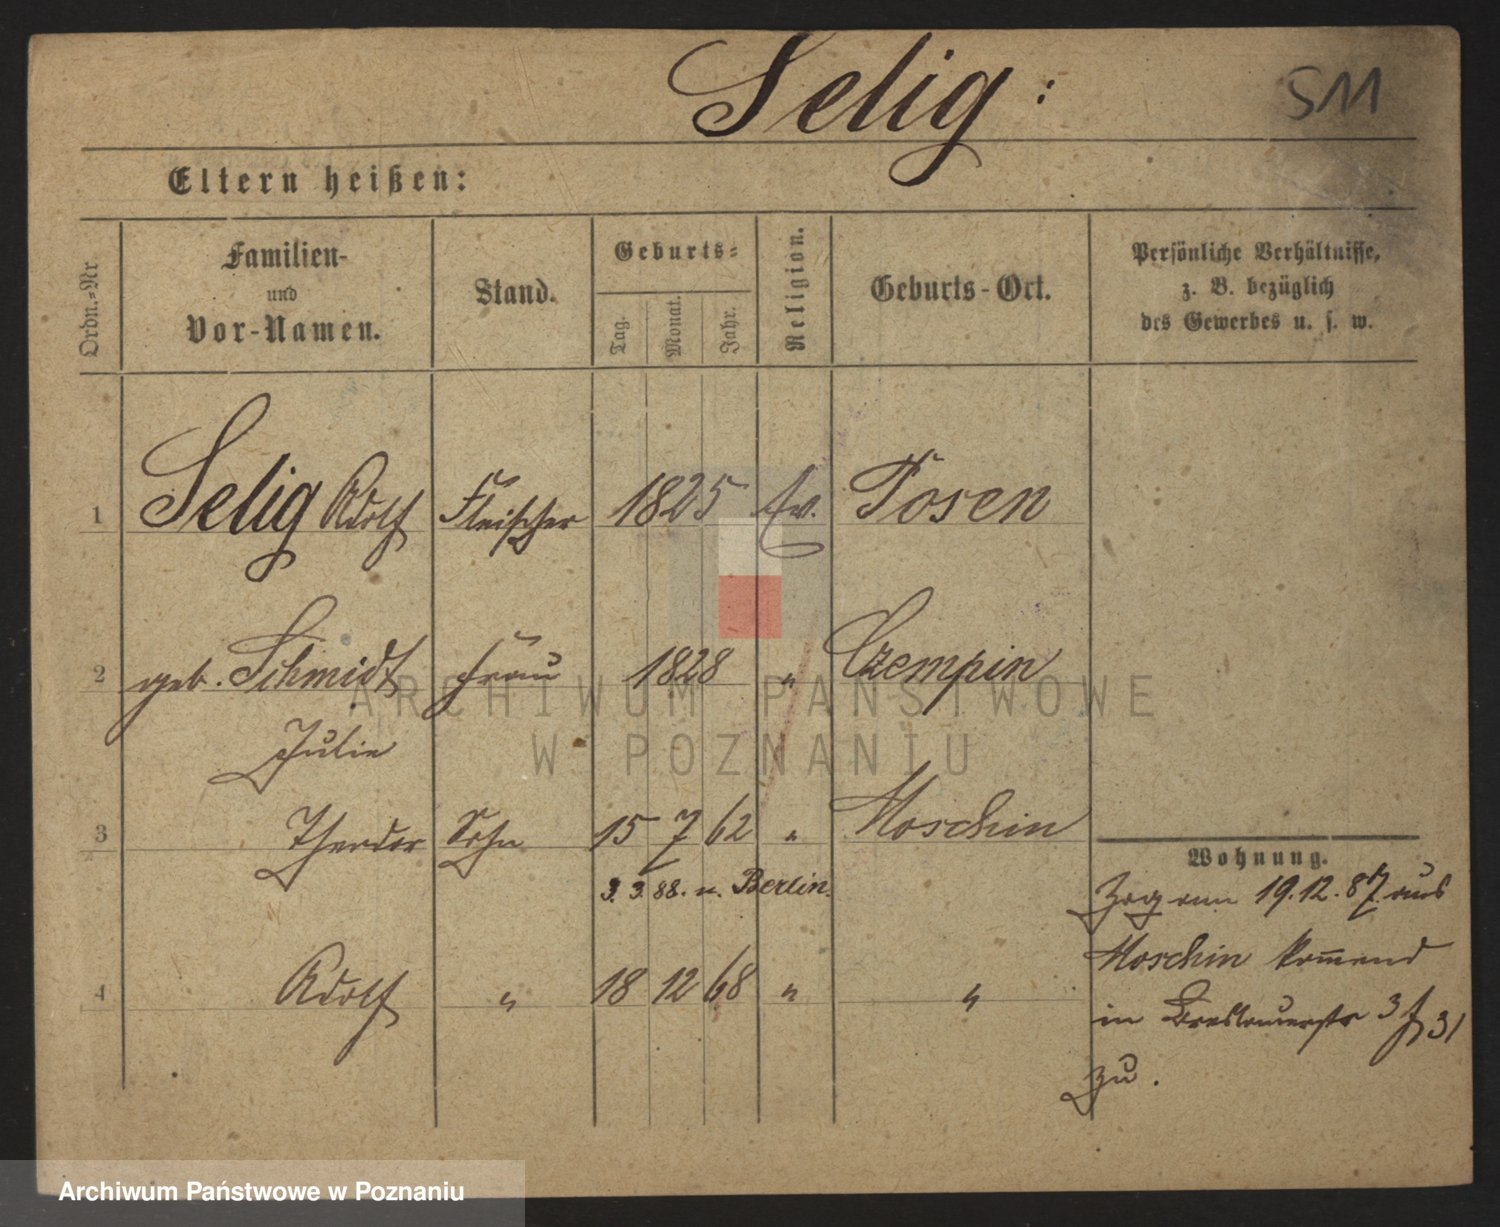 Selig:
511
Eltern heißen:
Ordn.=Nr.
Familien-
und
Vor-Namen.
Stand.
Geburts=
Tag.
Monat.
Jahr.
Religion.
Geburts-Ort.
Persönliche Verhältnisse,
z. B. bezüglich
des Gewerbes u. s. w.
1 Selig Adolf Fleischer 1825 ev. Posen
2 geb. Schmidt Frau 1828 " Czempin
Julie
3 Theodor Sohn 15 7 62 " Moschin
3. 3. 88. n. Berlin.
4 Adolf " 18 12 68 " "
Wohnung.
Zog am 19.12.87 aus
Moschin kommend
in Breslauerstr 31
zu.
ARCHIWUM PAŃSTWOWE
W POZNANIU
Archiwum Państwowe w Poznaniu